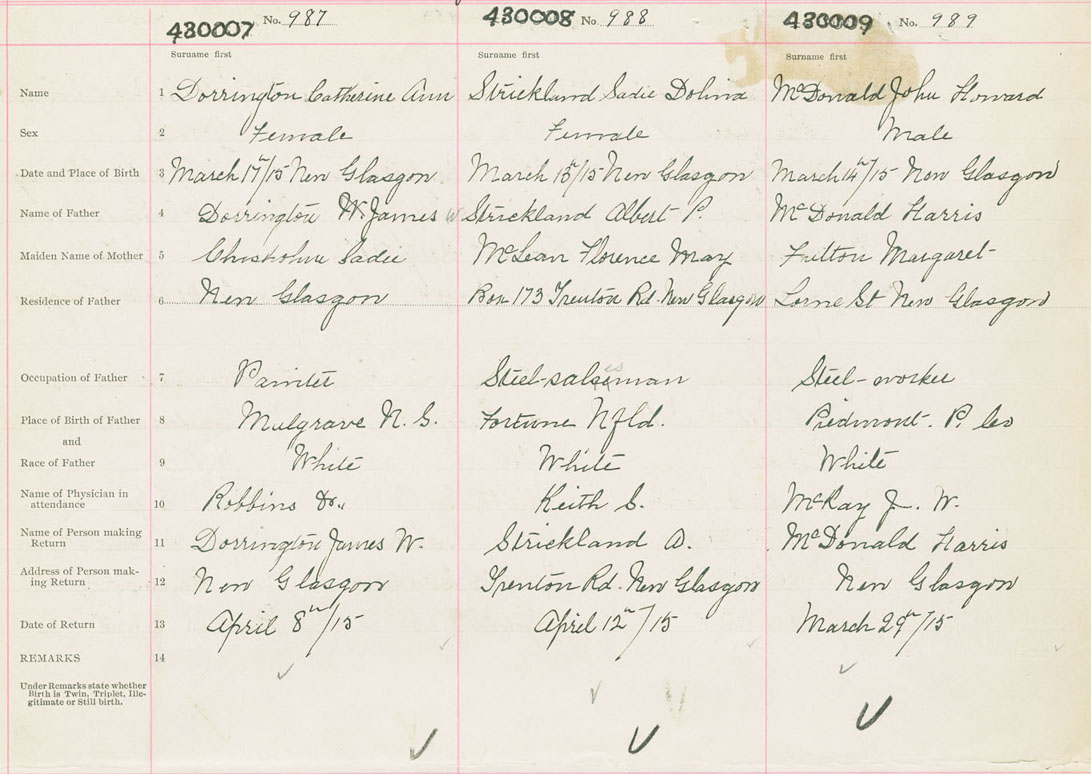 430007 No. 987 430008 No 988 430009 No. 989
Surname first Surname first Surname first
Name 1 Dorrington Catherine Ann Strickland Sadie Dolina McDonald John Howard
Sex 2 Female Female Male
Date and Place of Birth 3 March 17th/15 New Glasgow March 15/15 New Glasgow March 14th/15 New Glasgow
Name of Father 4 Dorrington W. James Strickland Albert P. McDonald Harris
Maiden Name of Mother 5 Chisholm Sadie McLean Florence May Fulton Margaret
Residence of Father 6 New Glasgow Box 173 Trenton Rd. New Glasgow Lorne St New Glasgow
Occupation of Father 7 Painter Steel-salesman Steel-worker
Place of Birth of Father 8 Mulgrave N. S. Fortune Nfld. Piedmont. P. Co
and
Race of Father 9 White White White
Name of Physician in
attendance 10 Robbins Dr. Keith S. McKay J. W.
Name of Person making
Return 11 Dorrington James W. Strickland A. McDonald Harris
Address of Person mak-
ing Return 12 New Glasgow Trenton Rd. New Glasgow New Glasgow
Date of Return 13 April 8th/15 April 12th/15 March 29th/15
REMARKS 14
Under Remarks state whether
Birth is Twin, Triplet, Ille-
gitimate or Still birth.